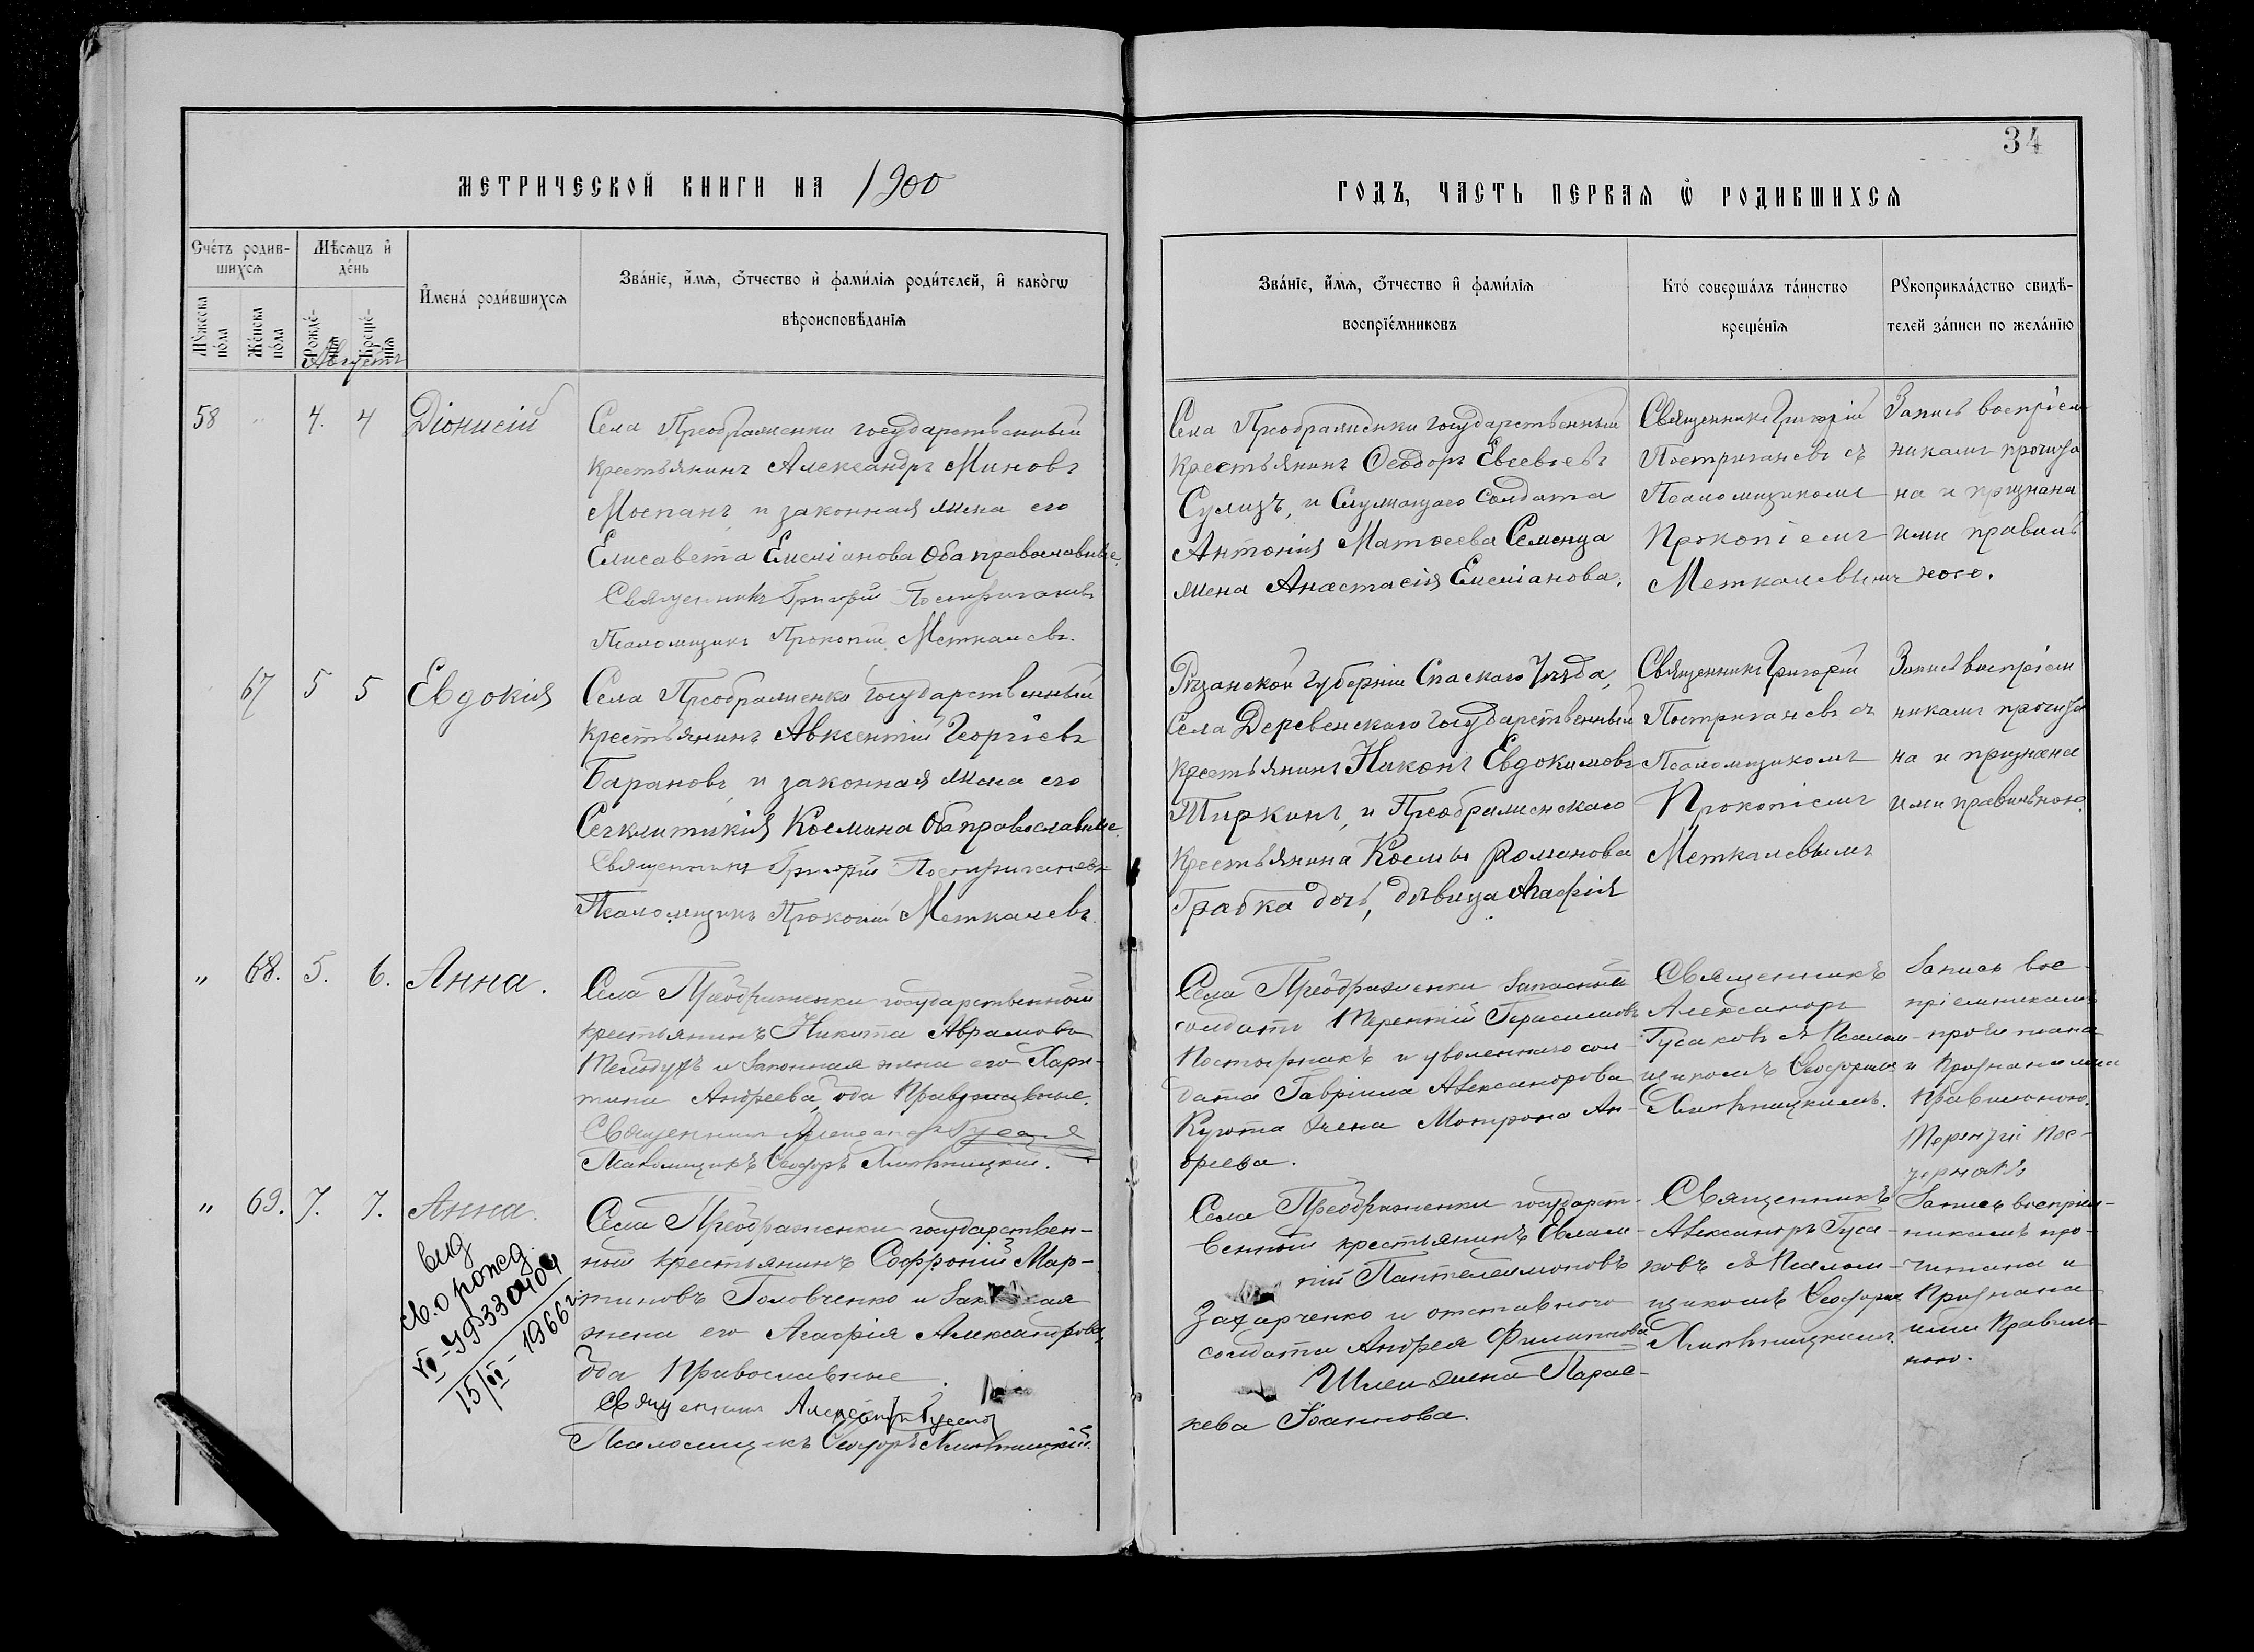 34
МЕТРИЧЕСКОЙ КНИГИ НА 1900
ГОДЪ, ЧАСТЬ ПЕРВАЯ Ѡ РОДИВШИХСЯ
Счетъ родив-
шихся
Мѣсяцъ и
день
Имена родившихся
Званіе, имя, отчество и фамилія родителей, и какогѡ
вѣроисповѣданія
Мужеска пола
Женска пола
Рожде-
нія
Креще-
нія
Августъ
Званіе, имя, отчество и фамилія
воспріемниковъ
Кто совершалъ таинство
крещенія
Рукоприкладство свидѣ-
телей записи по желанію
58 " 4. 4 Діонисій
Села Преображенки государственный
крестьянинъ Александръ Миновъ
Моспанъ, и законная жена его
Елисавета Емеліанова Оба православные.
Священникъ Григорій Постригановъ
Псаломщикъ Прокопій Меткалевъ.
Села Преображенки государственный
крестьянинъ Ѳеодоръ Евсевьевъ
и Служащаго Солдата
Антонія Матѳеева Семенца
жена Анастасія Емеліанова.
Священникъ Григорій
Постригановъ съ
Псаломщикомъ
Прокопіемъ
Меткалевымъ
Запись воспріем
никамъ прочита
на и признана
ими правиль
ною.
67 5 5 Евдокія
Села Преображенки государственный
крестьянинъ Авксентій Георгіевъ
Барановъ, и законная жена его
Сегклитикія Космина Оба православные.
Священникъ Григорій Постригановъ
Псаломщикъ Прокопій Меткалевъ.
Рязанской губерніи Спаскаго Уѣзда,
Села Деревенскаго государственный
крестьянинъ Никонъ Евдокимовъ
Тиркинъ, и Преображенскаго
Крестьянина Космы Романова
Грабка дочь, дѣвица Агафія
Священникъ Григорій
Постригановъ съ
Псаломщикомъ
Прокопіемъ
Меткалевымъ
Запись воспріем
никамъ прочита
на и признана
ими правильною.
" 68. 5. 6. Анна.
Села Преображенки государственный
крестьянинъ Никита Аврамовъ
и Законная жена его Хари-
тина Андреева, оба Православные.
Священникъ Александръ Гусаков
Псаломщикъ Ѳеодоръ
Села Преображенки Запасный
солдатъ Терентій Герасимовъ
Постернакъ и уволеннаго сол-
дата Гавріила Александрова
жена Матрона Ан-
дреева.
Священникъ
Александръ
Гусаковъ съ Псалом-
щикомъ Ѳеодоромъ
Запись вос-
пріемникамъ
прочитана
и Признана ими
Правильною.
Терентій Пос-
тернакъ
" 69. 7. 7. Анна.
Выд
св. о рожд.
15/VI-1966г
Села Преображенки государствен-
ный крестьянинъ Софроній Мар-
тиновъ Головченко и Законная
жена его Агафія Александрова,
Оба Православные.
Священникъ Александръ Гусаков
Псаломщикъ Ѳеодоръ
Села Преображенки государст-
венный крестьянинъ Евлам-
пій Пантелеимоновъ
Захарченко и отставного
солдата Андрея Филиппова
жена Парас-
кева Іоаннова.
Священникъ
Александръ Гуса-
ковъ съ Псалом-
щикомъ Ѳеодоромъ
Запись воспріем-
никамъ про-
читана и
Признана
ими Правиль-
ною.